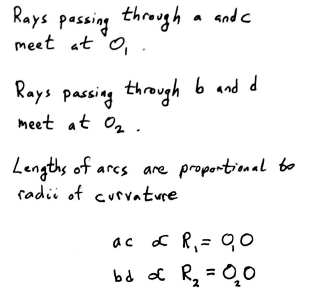 Rays passing through a and c
meet at O₁ .
Rays passing through b and d
meet at O₂ .
Lengths of arcs are proportional to
radii of curvature
ac ∝ R₁ = O₁O
bd ∝ R₂ = O₂O